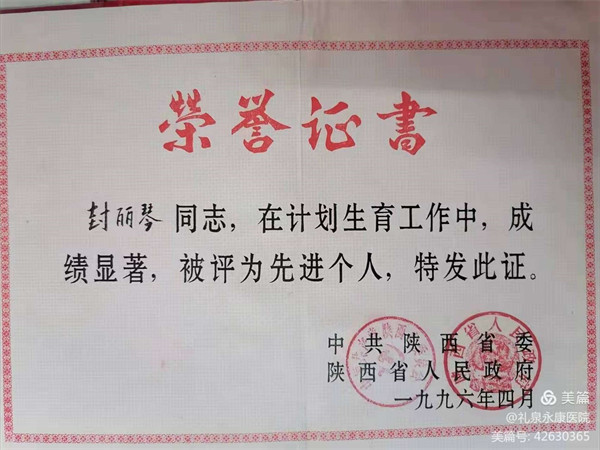 荣誉证书
封丽琴同志，在计划生育工作中，成
绩显著，被评为先进个人，特发此证。
中共陕西省委
陕西省人民政府
一九九六年四月
美篇
@礼泉永康医院
美篇号: 42630365